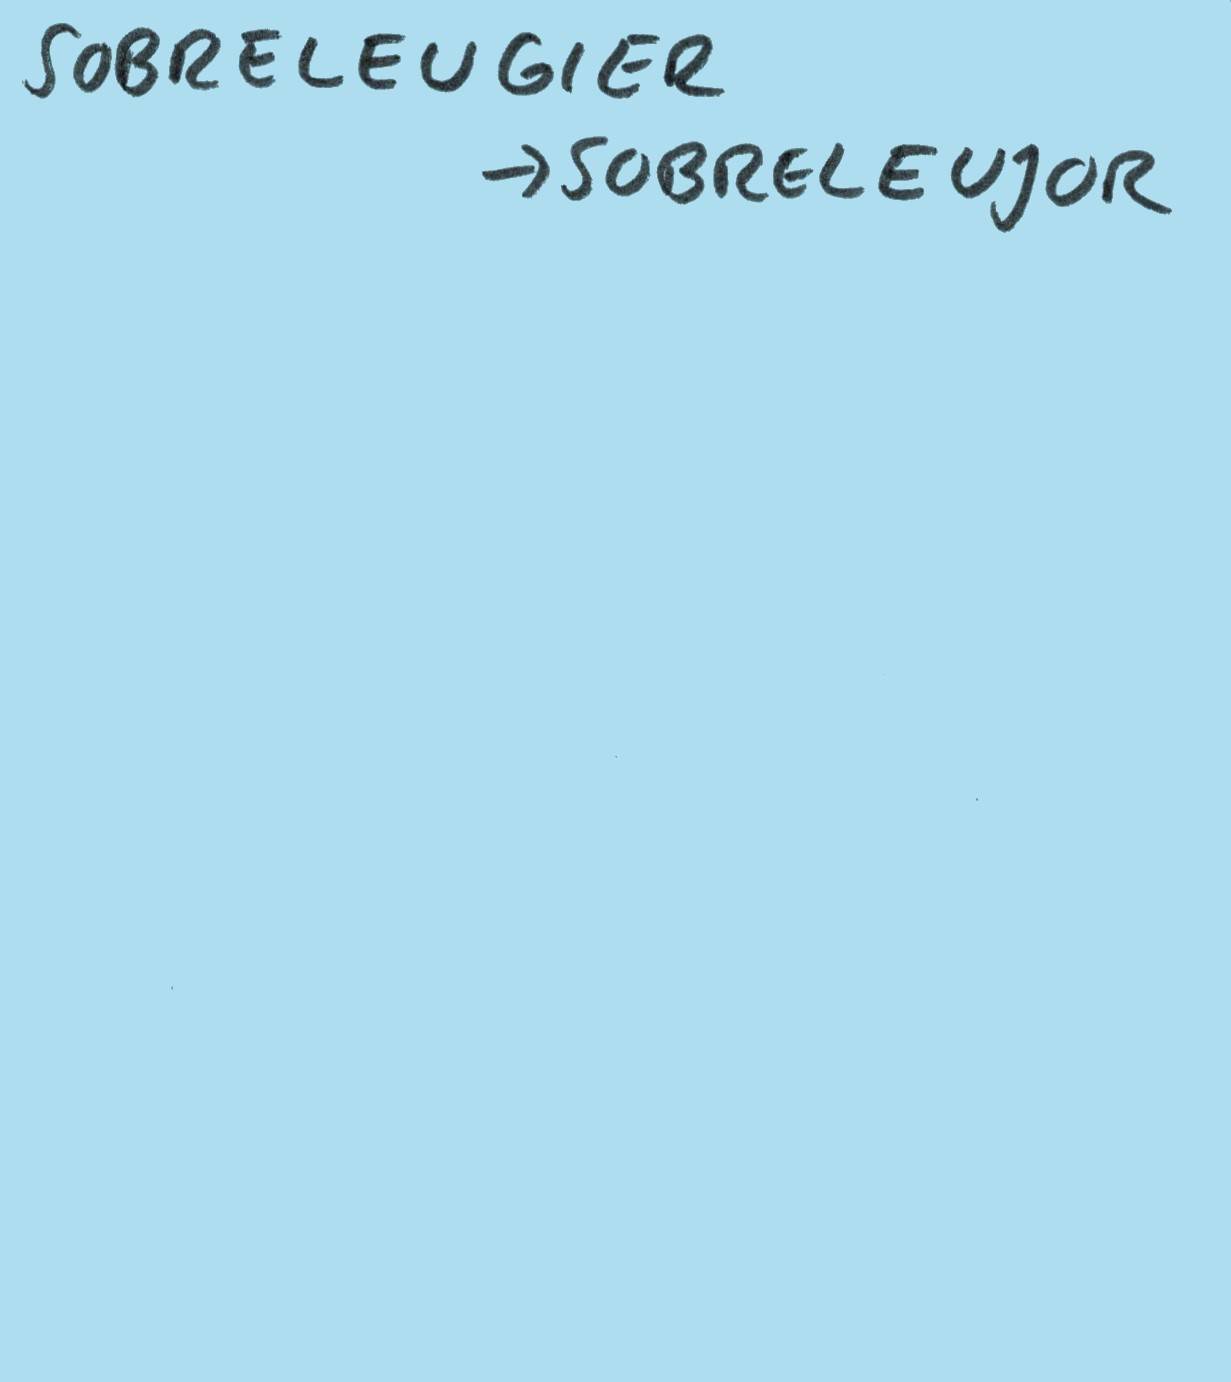 SOBRELEUGIER
→SOBRELEUJOR